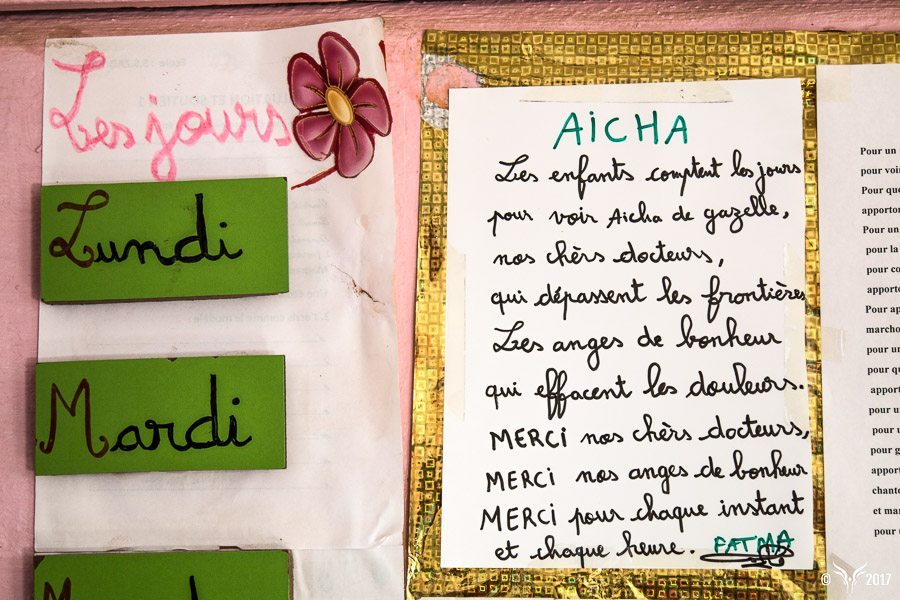 Les jours
Lundi
Mardi
AiCHA
Les enfants comptent les jours
pour voir Aicha de gazelle,
nos chèrs docteurs,
qui dépassent les frontières
Les anges de bonheur
qui effacent les douleurs.
MERCi nos chèrs docteurs,
MERCi nos anges de bonheur
MERCi pour chaque instant
et chaque heure. FATMA
Pour un
pour voir
Pour que
apporton
Pour un
pour la
pour co
apporte
Pour ap
marcho
pour un
pour qu
apport
pour u
pour u
pour g
apport
chante
et mar
pour
© 2017